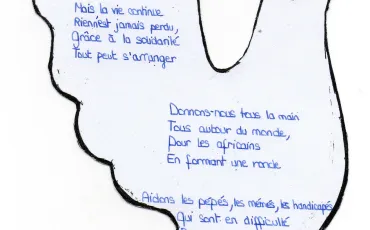 Mais la vie continue
Rien n'est jamais perdu,
Grâce à la solidarité
Tout peut s'arranger
Donnons-nous tous la main
Tous autour du monde,
Pour les africains
En formant une ronde
Aidons les pépés, les mémés, les handicapés
Qui sont en difficulté